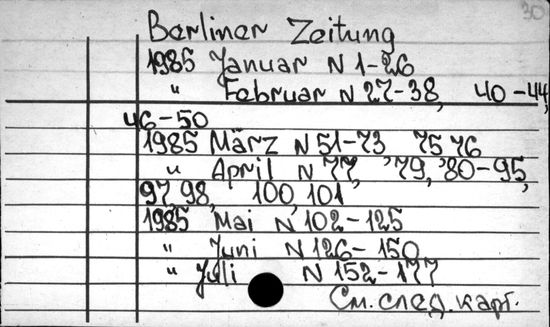 30
Berliner Zeitung
1985 Januar N 1-26
" Februar N 27-38, 40-44,
46-50
1985 März N 51-73 75 76
" April N 77, 79, 80-95,
97, 98, 100, 101
1985 Mai N 102-125
" Juni N 126-150
" Juli N 152-177
См. след. карт.